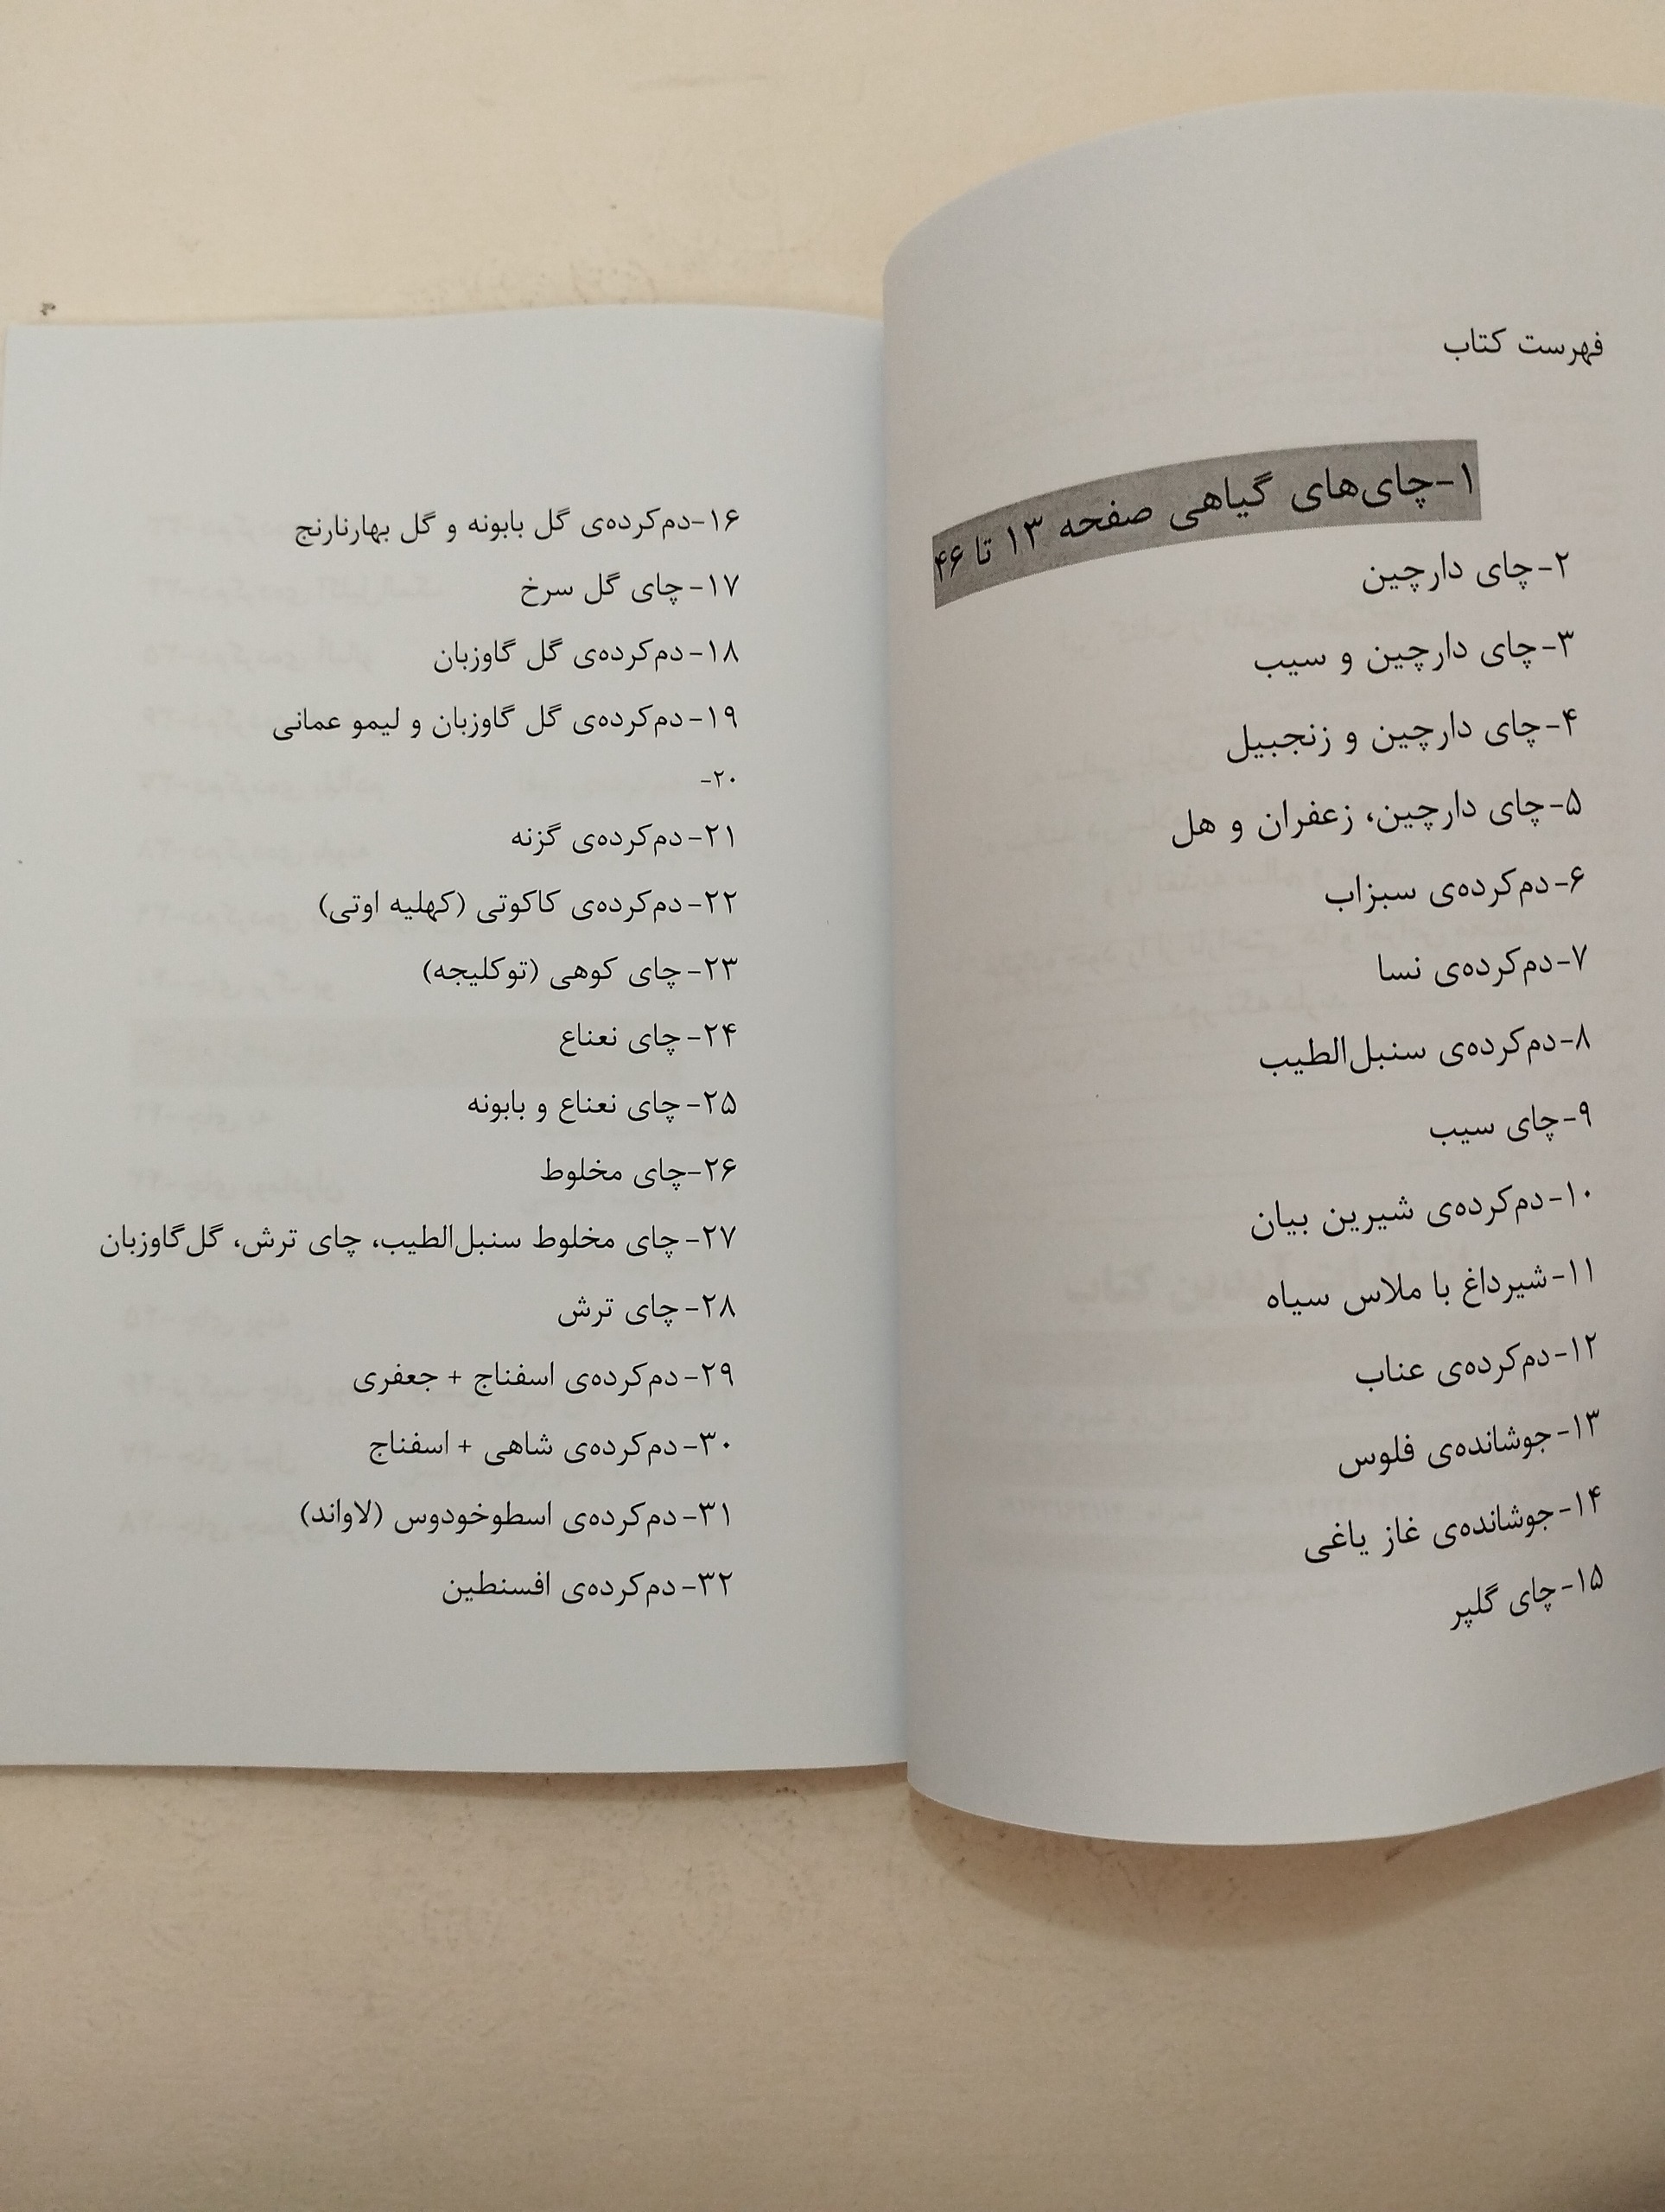 فهرست کتاب
۱-چای‌های گیاهی صفحه ۱۳ تا ۴۶
۲-چای دارچین
۳-چای دارچین و سیب
۴-چای دارچین و زنجبیل
۵-چای دارچین، زعفران و هل
۶-دم‌کرده‌ی سبزاب
۷-دم‌کرده‌ی نسا
۸-دم‌کرده‌ی سنبل‌الطیب
۹-چای سیب
۱۰-دم‌کرده‌ی شیرین بیان
۱۱-شیرداغ با ملاس سیاه
۱۲-دم‌کرده‌ی عناب
۱۳-جوشانده‌ی فلوس
۱۴-جوشانده‌ی غاز یاغی
۱۵-چای گلپر
۱۶-دم‌کرده‌ی گل بابونه و گل بهارنارنج
۱۷-چای گل سرخ
۱۸-دم‌کرده‌ی گل گاوزبان
۱۹-دم‌کرده‌ی گل گاوزبان و لیمو عمانی
۲۰-
۲۱-دم‌کرده‌ی گزنه
۲۲-دم‌کرده‌ی کاکوتی (کهلیه اوتی)
۲۳-چای کوهی (توکلیجه)
۲۴-چای نعناع
۲۵-چای نعناع و بابونه
۲۶-چای مخلوط
۲۷-چای مخلوط سنبل‌الطیب، چای ترش، گل‌گاوزبان
۲۸-چای ترش
۲۹-دم‌کرده‌ی اسفناج + جعفری
۳۰-دم‌کرده‌ی شاهی + اسفناج
۳۱-دم‌کرده‌ی اسطوخودوس (لاواند)
۳۲-دم‌کرده‌ی افسنطین